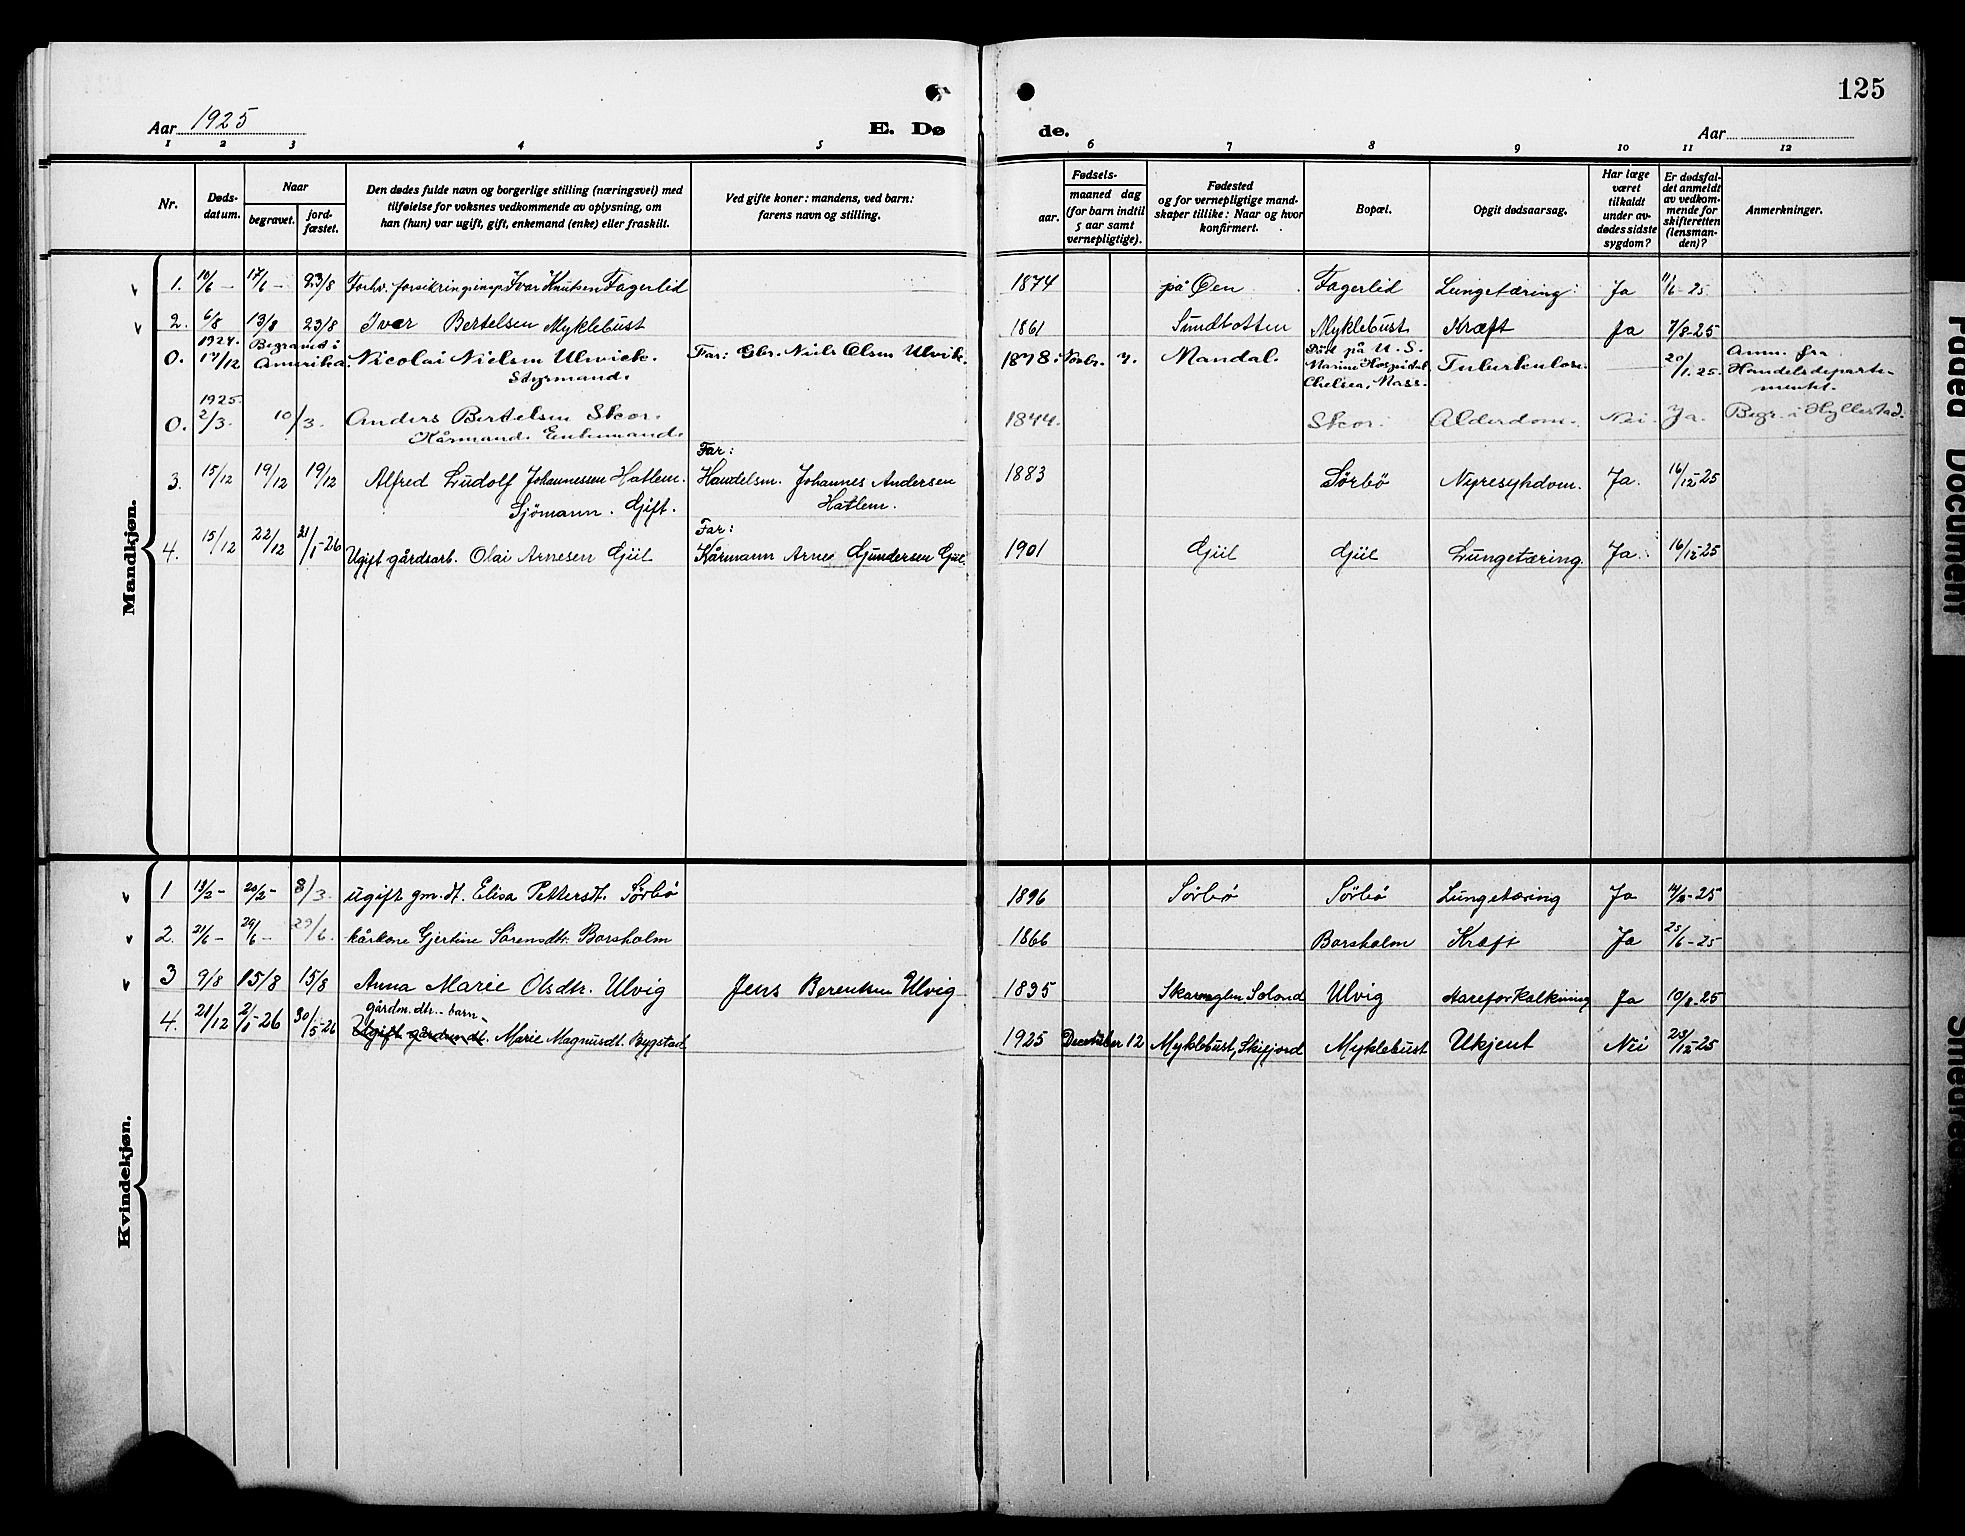 125
Aar 1925
E. Dø
de.
Aar
1 2 3 4 5
6 7 8 9 10 11 12
Nr.
Døds-
datum.
Naar
begravet.
jord-
fæstet.
Den dødes fulde navn og borgerlige stilling (næringsvei) med
tilføielse for voksnes vedkommende av oplysning, om
han (hun) var ugift, gift, enkemand (enke) eller fraskilt.
Ved gifte koner: mandens, ved barn:
farens navn og stilling.
Fødsels-
aar.
maaned dag
(for barn indtil
5 aar samt
vernepligtige).
Fødested
og for vernepligtige mand-
skaper tillike: Naar og hvor
konfirmert.
Bopæl.
Opgit dødsaarsag.
Har læge
været
tilkaldt
under av-
dødes sidste
sygdom?
Er dødsfal-
det anmeldt
av vedkom-
mende for
skifteretten
(lensman-
den)?
Anmerkninger.
Mandkjøn.
1. 10/6 - 17/6 - 23/8 Forhv. Ivar Knutsen Fagerlid 1874 på Øen Fagerlid Lungetæring Ja 11/6-25
2. 6/8 13/8 23/8 Iver Bertelsen Myklebust 1861 Sundbotten Myklebust Kræft Ja 7/8-25
1924. Begravd i
0. 17/12 Amerika. Nicolai Nielsen Ulvick. Far: Gbr. Niels Olsen Ulvik. 1878. Novbr. 7. Mandal. Død på U. S. Tuberkulose. 20/1.25. Anm. fra
Styrmand. Marine Hospital Handelsdeparte-
Chelsea, Mass. mentet.
1925.
0. 2/3. 10/3. Anders Bertelsen Skor. 1844. Skor. Alderdom. Nei. Ja. Begr. i Hyllestad.
Kårmand. Enkemand.
Far:
3. 15/12 19/12 19/12 Alfred Ludolf Johannessen Hatlem. Handelsm. Johannes Andersen 1883 Sørbø Nyresykdom. Ja. 16/12-25
Sjömann. Gift. Hatlem.
Far:
4. 15/12 22/12 21/1-26 Ugift gårdsarb. Olai Arnesen Gjil Kårmann Arne Gundersen Gjil. 1901 Gjil Gjil Lungetæring. Ja. 16/12-25
Kvindekjøn.
1 13/2- 20/2- 8/3. ugift gm.dt. Elisa Pettersdt. Sørbø 1896 Sørbø Sørbø Lungetæring Ja 14/2-25
2. 21/6- 29/6- 29/6. kårkone Gjertine Sørensdtr. Borsholm 1866 Borsholm Kræft Ja 25/6-25
3 9/8 15/8 15/8 Anna Marie Olsdtr. Ulvig Jens Berentsen Ulvig 1895 Solund Ulvig Aareforkalkning Ja 10/8-25
gårdm. dtr. - barn -
4. 21/12 2/1-26 30/5-26 Ugift gårdmdt. Marie Magnusdt. Bygstad 1925 December 12 Myklebust, Skifjord Myklebust Ukjent Nei 23/12-25
Faded Document
Smeared